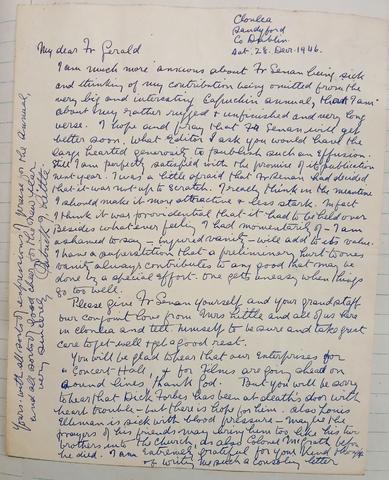 Clonlea
Sandyford
Co Dublin.
Sat. 28. Decr. 1946.
My dear Fr Gerald
I am much more anxious about Fr Senan being sick
and thinking of my contribution being omitted from the
very big and interesting Capuchin annual, than I am
about my rather rugged & unfinished and very long
verse. I hope and pray that Fr Senan will get
better soon, What Editor I ask you would have the
large hearted generosity to publish such an effusion.
Still I am perfectly satisfied with the promise of its publication
next year. I was a little afraid that Fr Senan had decided
that it was not up to scratch. I really think in the meantime
I should make it more attractive & less stark. In fact
I think it was providential that it had to be held over
Besides whatever feeling I had momentarily of – I am
ashamed to say – injured vanity – will add to its value.
I have a superstition that a preliminary hurt to ones
vanity always contributes to any good that may be
done by a special effort. One gets uneasy when things
go too well.
Please give Fr Senan yourself and your grand staff
our conjoint love from Mrs Little and all of us here
in Clonlea and tell himself to be sure and take great
care to get well & get a good rest.
You will be glad to hear that our enterprises for
"Concert Hall, & for Filmes are going ahead on
sound lines, thank God. But you will be sorry
to hear that Dick Forbes has been at death's door with
heart trouble – but there is hope for him. also
is sick with blood pressure – may be the
prayers of his friends may bring him too like his two
brothers into the Church, as also Colonel McGrath before
he died. I am extremely grateful for your kind
of writing me such a consoling letter
Yours with all sorts of expressions of praise in the annual,
and all sorts of good cheer for the new year
very sincerely Patrick J. Little